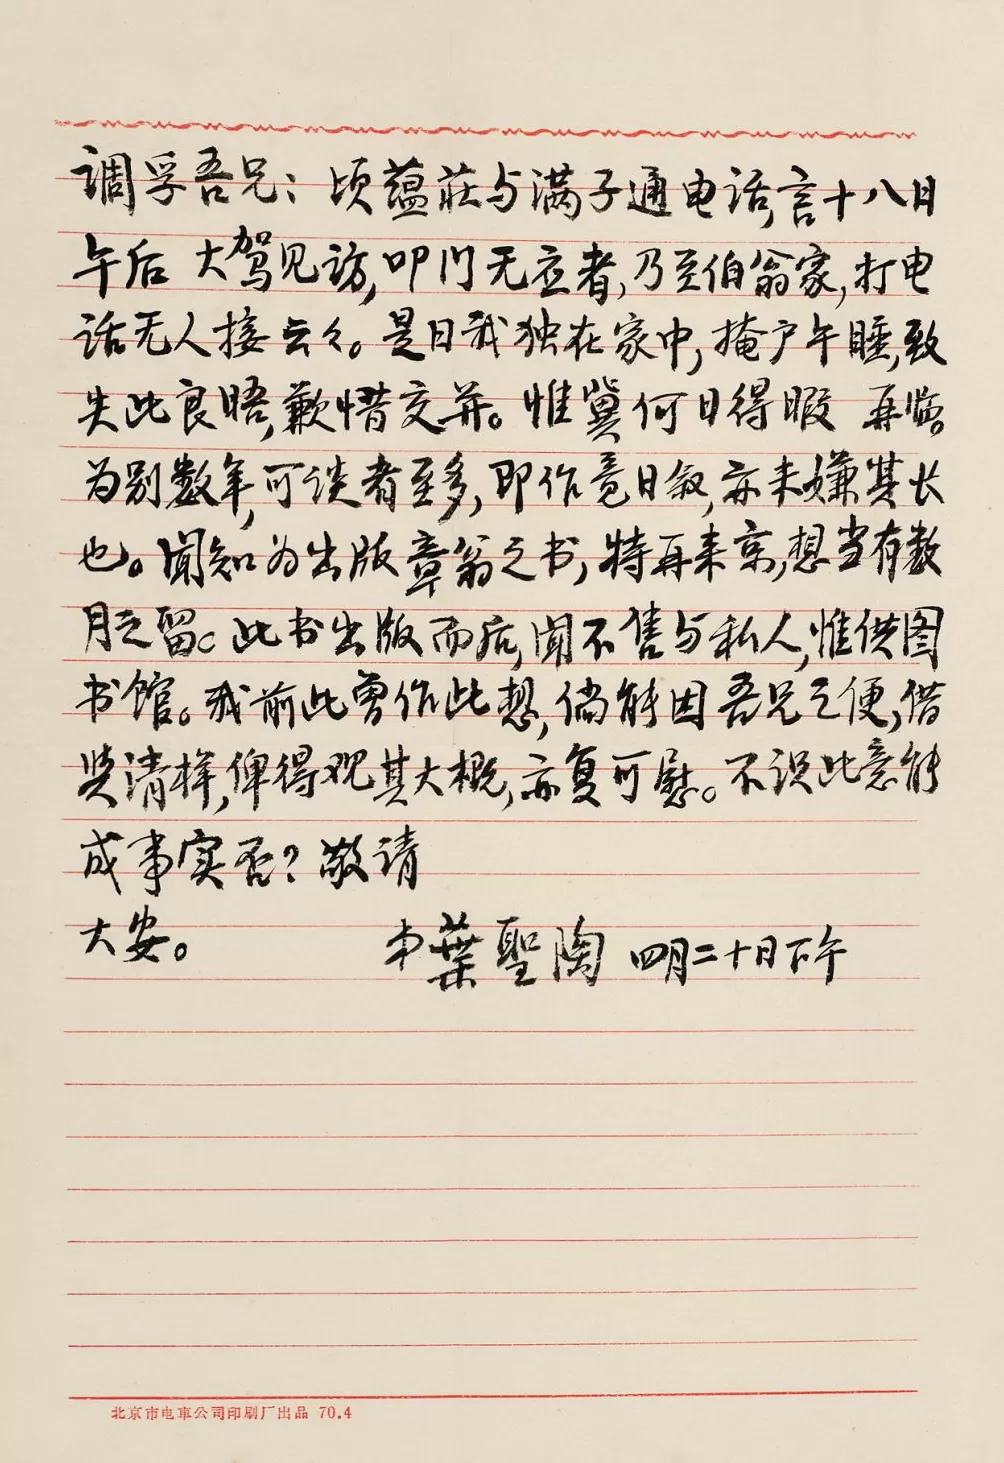 调孚吾兄：顷蕴莊与满子通电话，言十八日
午后 大驾见访，叩门无应者，乃至伯翁家，打电
话无人接云々。是日我独在家中，掩户午睡，致
失此良晤，歉惜交并。惟冀何日得暇 再临。
为别数年，可谈者至多，即作竟日叙，亦未嫌其长
也。闻知为出版章翁之书，特再来京，想当有数
月之留。此书出版而后，闻不售与私人，惟供图
书馆。我前此曾作此想，倘能因吾兄之便，借
与清样，俾得观其大概，亦复可慰。不识此意能
成事实否？敬请
大安。
弟葉聖陶 四月二十日下午
北京市电車公司印刷厂出品 70.4